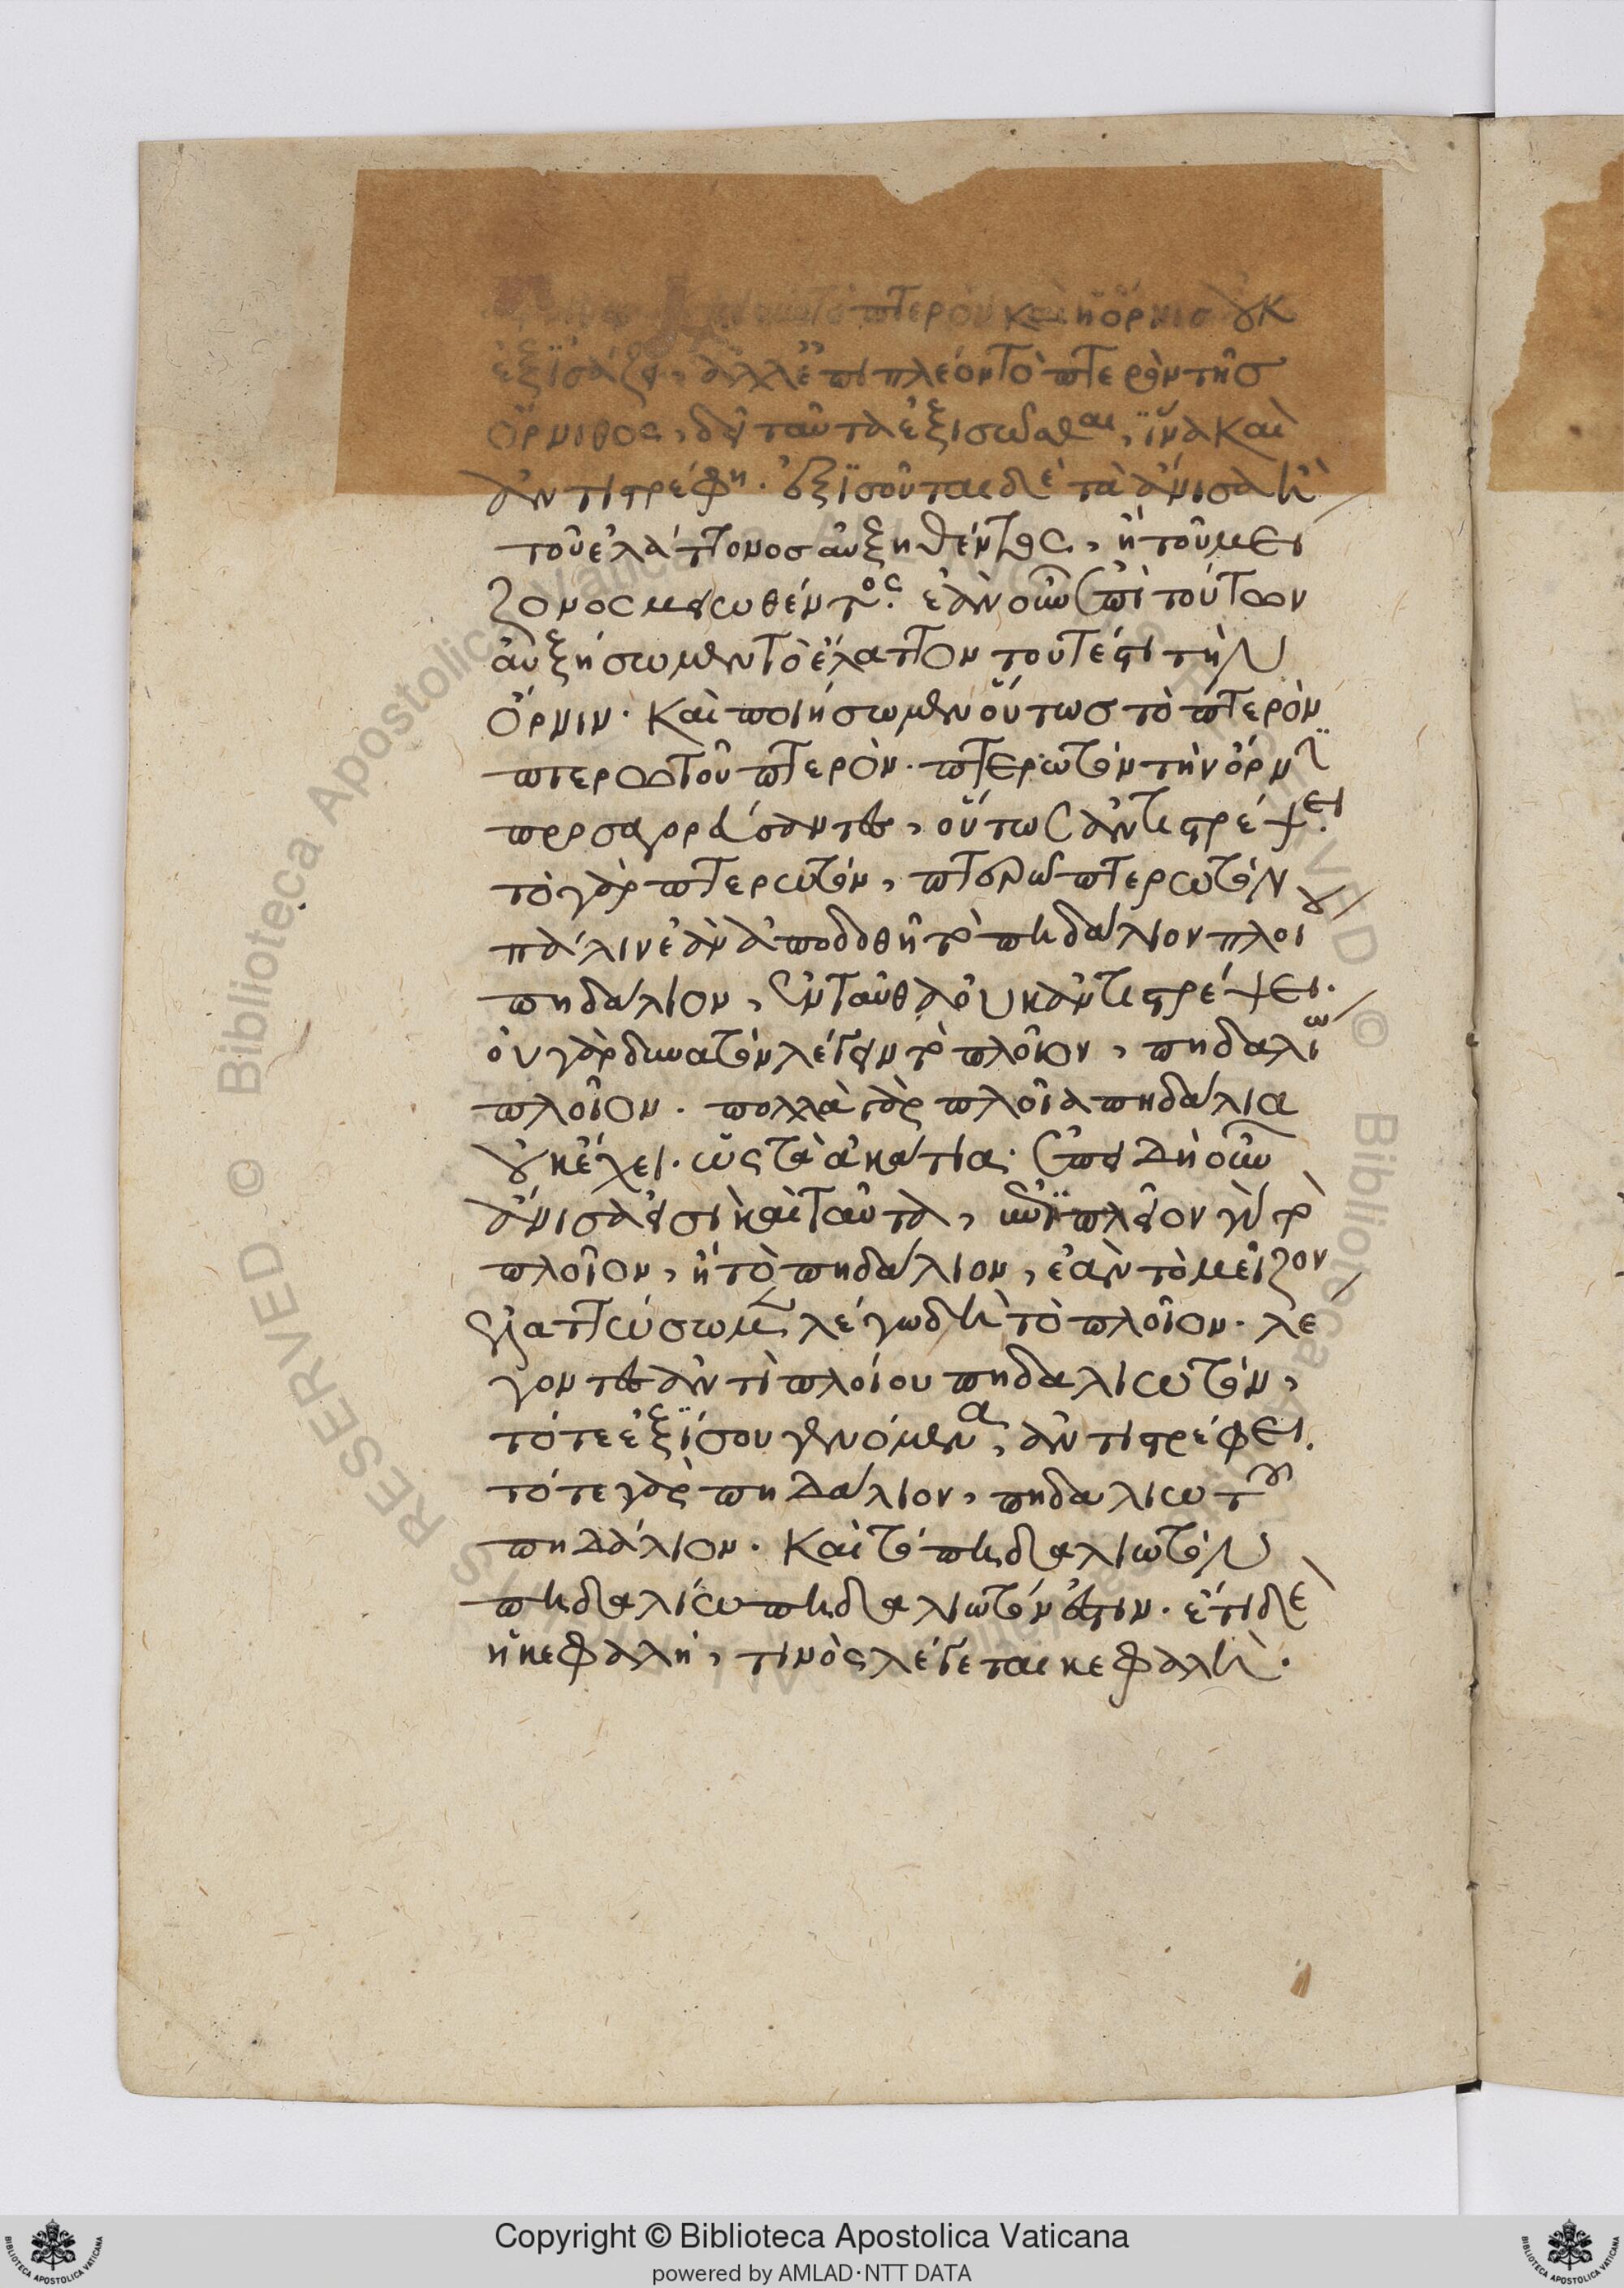 πτερὸν καὶ ἡ ὄρνις οὐκ
ἐξϊσάζει, ἀλλ' ἐπιπλέον τὸ πτερὸν τῆς
ὄρνιθος, δεῖ ταῦτα ἐξισωθῆναι, ἵνα καὶ
ἀντιστρέφη. ἐξϊσοῦται δὲ τὰ ἄνισα ἢ
τοῦ ἐλάττονος αὐξηθέντος, ἢ τοῦ μεί
ζονος μειωθέντος. ἐὰν οὖν ἐπὶ τούτων
αὐξήσωμεν τὸ ἔλαττον τουτέστι τὴν
ὄρνιν. καὶ ποιήσωμεν οὕτως τὸ πτερὸν
πτερωτοῦ πτερὸν. πτερωτὸν τὴν ὄρνϊν
προσαγορεύσαντες, οὕτως ἀντιστρέψει.
τὸ γὰρ πτερωτὸν, πτερῶ πτερωτὸν
πάλιν ἐὰν ἀποδοθῆ τὸ πηδάλιον πλοί
πηδάλιον, ἐνταῦθα οὐκ ἀντιστρέψει.
οὐ γὰρ δυνατὸν λέγειν τὸ πλοῖον, πηδαλίω
πλοῖον. πολλὰ γὰρ πλοῖα πηδάλια
οὐκ ἔχει. ὡς τὰ ἀκάτια. ἐπειδὴ οὖν
ἄνισα εἰσὶ καὶ ταῦτα, ἐπιπλεῖον γὰρ τὸ
πλοῖον, ἢ τὸ πηδάλιον, ἐὰν τὸ μεῖζον
ἐλαττώσωμεν λέγω δὴ τὸ πλοῖον. λέ
γοντες ἀντὶ πλοίου πηδαλιωτὸν,
τότε ἐξϊσου γενόμενα, ἀντιστρέφει.
τότε γὰρ πηδάλιον, πηδαλιωτοῦ
πηδάλιον. καὶ τὸ πηδαλιωτὸν
πηδαλίω πηδαλιωτὸν ἐστιν. ἔτι δὲ
ἡ κεφαλὴ, τινὸς λέγεται κεφαλὴ.
Copyright © Biblioteca Apostolica Vaticana
powered by AMLAD·NTT DATA